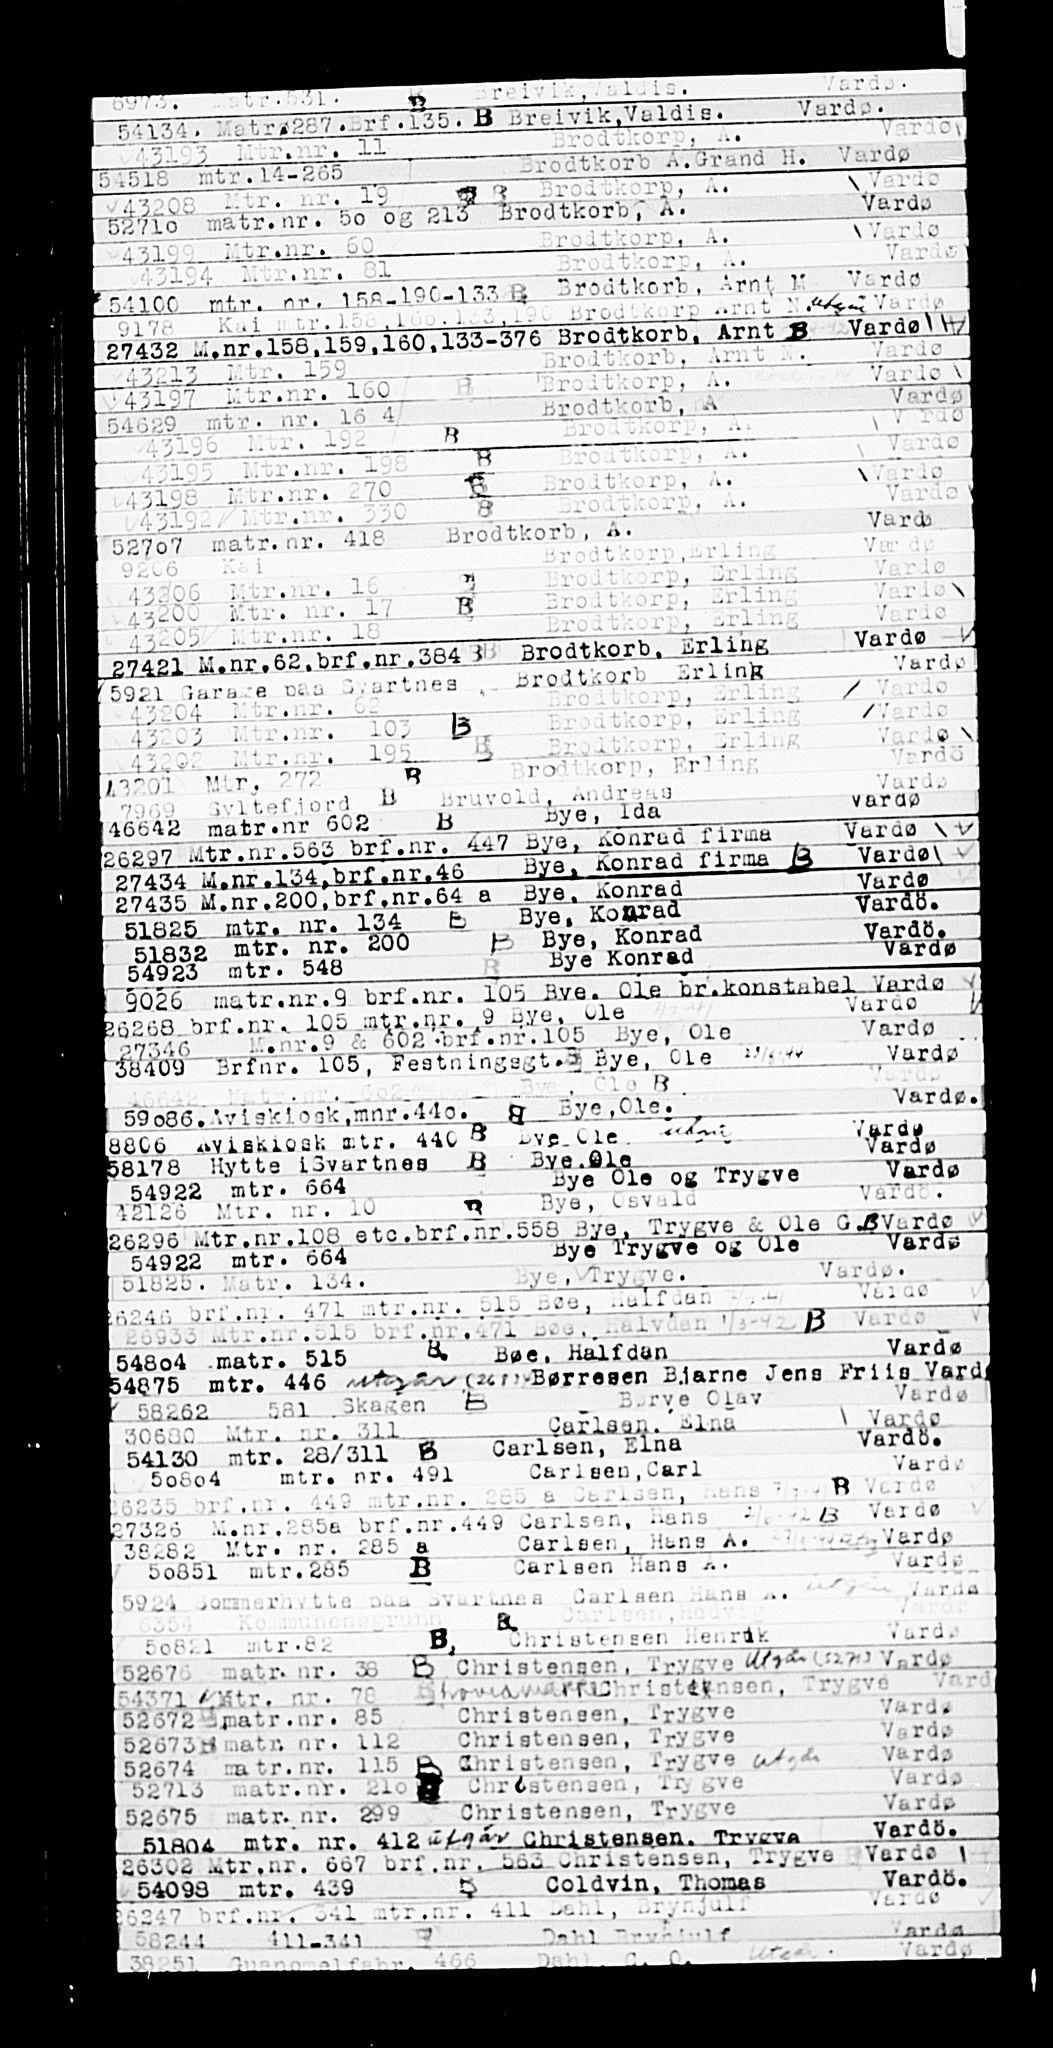 6973. Matr.531. B Breivik,Valdis. Vardø.
54134. Matr.287.Brf.135. B Breivik,Valdis. Vardø.
43193 Mtr.nr. 11 Brodtkorp, A. Vardø
54518 mtr.14-265 Brodtkorb A.Grand H. Vardø
43208 Mtr. nr. 19 B Brodtkorp, A. Vardø
52710 matr.nr. 50 og 213 Brodtkorb, A. Vardø
43199 Mtr.nr. 60 Brodtkorp, A. Vardø
43194 Mtr.nr. 81 Brodtkorp, A. Vardø
54100 mtr. nr. 158-190-133 B Brodtkorb, Arnt M Vardø
9178 Kai mtr.158,160.133,190 Brodtkorp Arnt N. utgår Vardø
27432 M.nr.158,159,160,133-376 Brodtkorb, Arnt B Vardø
43213 Mtr. 159 Brodtkorb, Arnt M. Vardø
43197 Mtr.nr. 160 B Brodtkorp, A. Vardø
54629 mtr. nr. 16 4 Brodtkorb, A Vardø
43196 Mtr. 192 B Brodtkorp, A. V rdø
43195 Mtr.nr. 198 B Brodtkorp, A. Vardø
43198 Mtr.nr. 270 B Brodtkorp, A. Vardø
43192 Mtr.nr. 330 B Brodtkorp, A. Vardø
52707 matr.nr. 418 Brodtkorb, A. Vardø
9206 Kai Brodtkorp,Erling Vardø
43206 Mtr.nr. 16 Brodtkorp, Erling Vardø
43200 Mtr. nr. 17 B Brodtkorp, Erling Vardø
43205 Mtr.nr. 18 Brodtkorp, Erling Vardø
27421 M.nr.62,brf.nr.384 B Brodtkorb, Erling Vardø
5921 Garage paa Svartnes Brodtkorb Erling Vardø
43204 Mtr.nr. 62 Brodtkorp, Erling Vardø
43203 Mtr.nr. 103 B Brodtkorp, Erling Vardø
43202 Mtr.nr. 195 B Brodtkorp, Erling Vardø
43201 Mtr, 272 B Brodtkorp, Erling Vardö
7969 Syltefjord B Bruvold, Andreas Vardø
46642 matr.nr 602 B Bye, Ida Vardø
26297 Mtr.nr.563 brf.nr. 447 Bye, Konrad firma Vardø
27434 M.nr.134,brf.nr.46 Bye, Konrad firma B Vardø
27435 M.nr.200,brf.nr.64 a Bye, Konrad Vardø
51825 mtr. nr. 134 B Bye, Konrad Vardö.
51832 mtr. nr. 200 B Bye, Konrad Vardö.
54923 mtr. 548 B Bye Konrad Vardø
9026 matr.nr.9 brf.nr. 105 Bye. Ole br.konstabel Vardø
26268 brf.nr. 105 mtr.nr. 9 Bye, Ole Vardø
27346 M.nr.9 & 602 brf.nr.105 Bye, Ole Vardø
38409 Brfnr. 105, Festningsgt. B Bye, Ole Vardø
46642 Matr.nr. 602 Bye, Ole B Vardø
59086.Aviskiosk,mnr.440. B Bye,Ole. Vardø.
8806 Aviskiosk mtr. 440 B Bye Ole utgår Vardø
58178 Hytte iSvartnes B Bye.Ole Vardø
54922 mtr. 664 Bye Ole og Trygve Vardø
42126 Mtr. nr. 10 B Bye, Osvald Vardö.
26296 Mtr.nr.108 etc.brf.nr.558 Bye, Trygve & Ole G. B Vardø
54922 mtr. 664 Bye Trygve og Ole Vardø
51825. Matr. 134. Bye, Trygve. Vardø.
26246 brf.nr. 471 mtr.nr. 515 Bøe, Halfdan Vardø
26933 Mtr.nr.515 brf.nr.471 Bøe, Halvdan 1/8-42 B Vardø
54804 matr. 515 B. Bøe, Halfdan Vardø
54875 mtr. 446 utgår Børresen Bjarne Jens Friis Vardø
58262 581 Skagen B Børve Olav Vardø
30680 Mtr. nr. 311 Carlsen. Elna Vardø
54130 mtr. 28/311 B Carlsen, Elna Vardö.
50804 mtr. nr. 491 Carlsen,Carl Vardø
26235 brf.nr. 449 mtr.nr. 285 a Carlsen, Hans B Vardø
27326 M.nr.285a brf.nr.449 Carlsen, Hans 2/6-42 B Vardø
38282 Mtr. nr. 285 a Carlsen, Hans A. Vardø
50851 mtr.285 B Carlsen Hans A. Vardø
5924 Sommerhytte paa Svartnes Carlsen Hans A. utgår Vardø
6354 Kommunensgrunn B Carlsen,Hedvig Vardø
50821 mtr.82 B. Christensen Henrik Vardø
52676 matr. nr. 38 B Christensen, Trygve Utgår Vardø
54371 Mtr. nr. 78 Christensen, Trygve Vard
52672 matr.nr. 85 Christensen, Trygve Vardø
52673 matr. nr. 112 Christensen, Trygve Vardø
52674 matr.nr. 115 B Christensen, Trygve utgår Vardø
52713 matr.nr. 210 Christensen, Trygve Vardø
52675 matr.nr. 299 Christensen, Trygve Vardø
51804 mtr. nr. 412 utgår Christensen. Trygve Vardö.
26302 Mtr.nr. 667 brf.nr. 563 Christensen, Trygve Vardø
54098 mtr. 439 B Coldvin, Thomas Vardö.
26247 brf.nr. 341 mtr.nr. 411 Dahl, Brynjulf Vardø
58244 411-341 Dahl Brynjulf Vardø
38251 Guanomelfabr. 466 Dahl, C. O. Utgår. Vardø